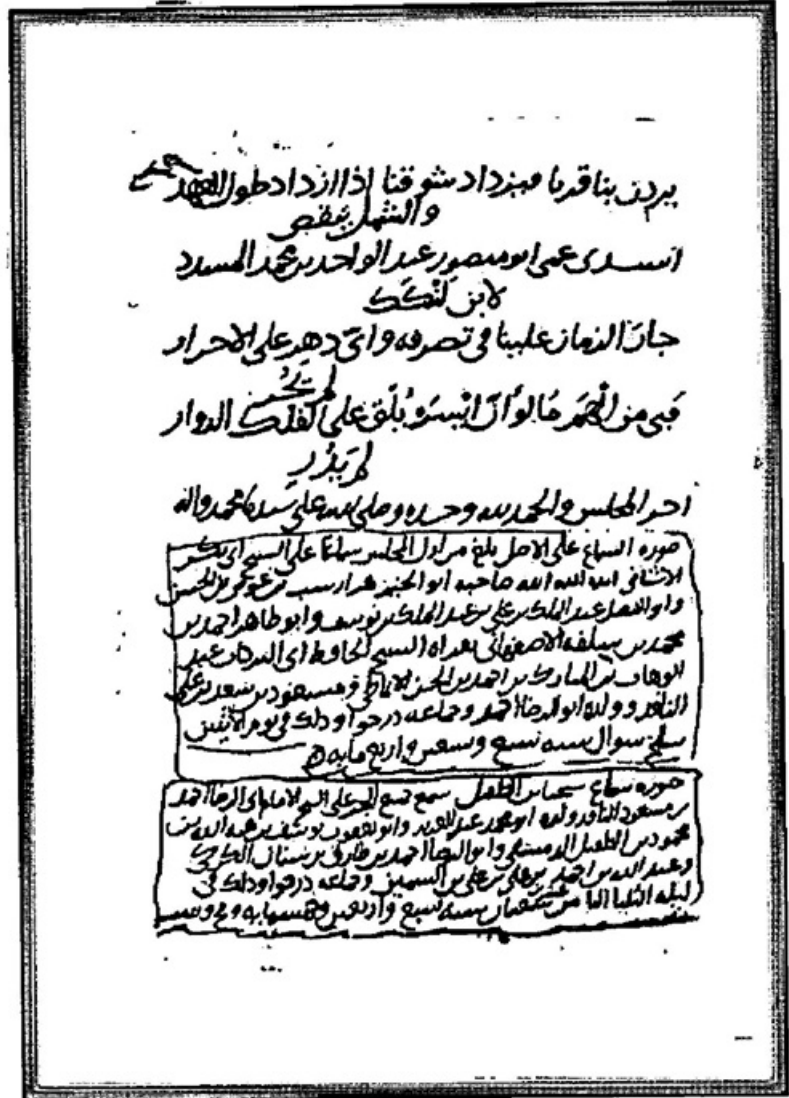 يردن بنا قربا فيزداد شوقنا إذا ازداد طول العهد
والشمل ينقص
انسدى عمى ابو منصور عبد الواحد بن محمد
لابن لنكك
جار الزمان علينا في تصرفه واى دهر على الاحرار
لم يجر
الفلك الدوار
لم يدر
اخر المجلس والحمد لله وحده وصلى الله على سيدنا محمد واله
صوره السماع على الاصل بلغ من اول المجلس سماعا على الشيخ ابى بكر
صاحبه ابو الحسن
عبد الملك بن على بن عبد الملك بن يوسف وابو طاهر احمد بن
محمد بن سلفه الاصفهانى بقراه الشيخ الحافظ ابى البركات عبد
الوهاب بن المبارك بن احمد بن الحسن الانماطى ومسعود بن سعد بن على
الناقد وولده ابو الرضا احمد وجماعه درجوا وذلك فى يوم الاثنين
سلخ شوال سنه سبع وسعين واربع مايه
صوره سماع سمع جميع الجزء على الشيخ الامام ابى الرضا احمد
بن مسعود الناقد ولده ابو محمد عبد العزيز وابو يعقوب يوسف بن هبه الله بن
محمود بن الطفيل الدمشقى وابو الرضا احمد بن طارق بن سنان الكركى
وعبد الله بن احمد بن على بن على بن السمين وجماعه درجوا وذلك فى
ليله الثلثا شعبان سنه سبع واربعين وخمسمايه